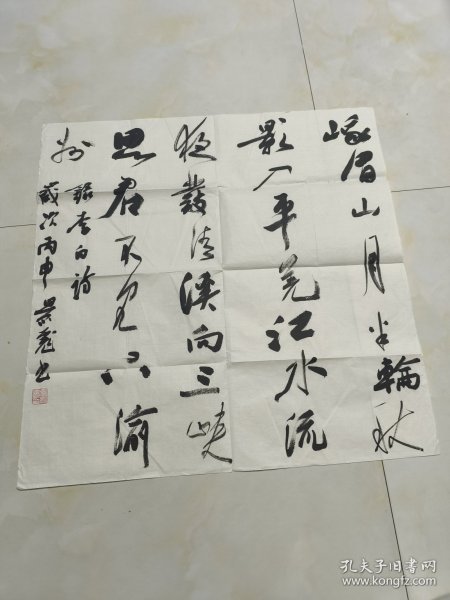 峨眉山月半輪秋
影入平羌江水流
夜發清溪向三峽
思君不見下渝
州
錄李白詩
歲次丙申景书
孔夫子旧书网
www.kongfz.com